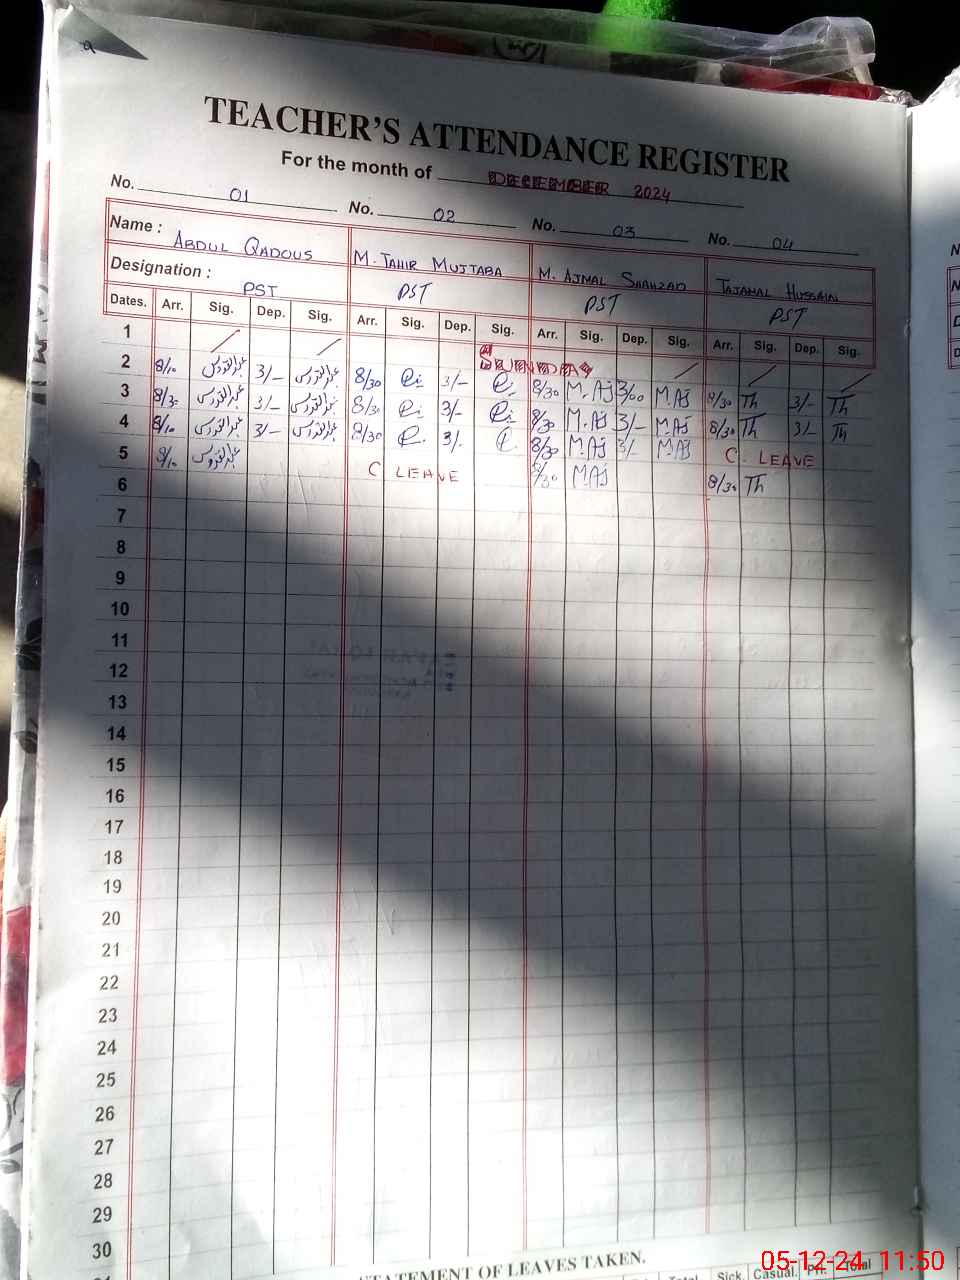 TEACHER'S ATTENDANCE REGISTER
For the month of DECEMBER 2024
No. 01 No. 02 No. 03 No. 04
Name : ABDUL QADOUS M. TAHIR MUJTABA M. AJMAL SHAHZAD TAJAMAL HUSSAIN
Designation : PST PST PST PST
Dates. Arr. Sig. Dep. Sig. Arr. Sig. Dep. Sig. Arr. Sig. Dep. Sig. Arr. Sig. Dep. Sig.
1 SUNDAY
2 8/10 عبدالقدوس 3/- عبدالقدوس 8/30 3/- 8/30 M.Aj 3/00 M.Aj 8/30 Th 3/- Th
3 8/30 عبدالقدوس 3/- عبدالقدوس 8/30 3/- 8/30 M.Aj 3/- M.Aj 8/30 Th 3/- Th
4 8/10 عبدالقدوس 3/- عبدالقدوس 8/30 3/- 8/30 M.Aj 3/- M.Aj C. LEAVE
5 8/10 عبدالقدوس C LEAVE 8/30 M.Aj 8/30 Th
6
7
8
9
10
11
12
13
14
15
16
17
18
19
20
21
22
23
24
25
26
27
28
29
30
STATEMENT OF LEAVES TAKEN.
Total Sick. Casual. Total
05-12-24 11:50